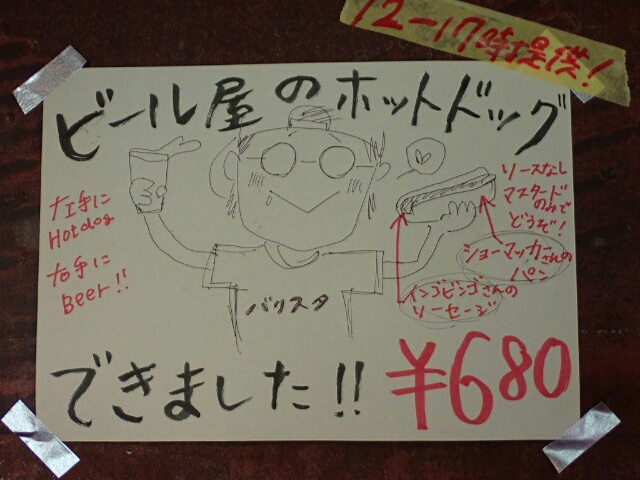 12-17時提供!
ビール屋のホットドッグ
左手に
Hotdog
右手に
Beer!!
ソースなし
マスタード
のみで
どうぞ!
ショーマッカーさんの
パン
インゴビンゴさんの
ソーセージ
バリスタ
できました!!
¥680